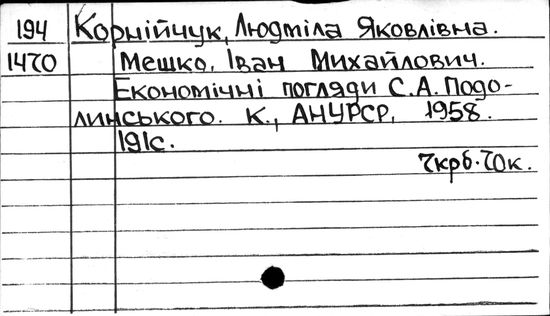 194 Корнійчук, Людміла Яковлівна.
1470 Мешко, Іван Михайлович.
Економічні погляди С.А. Подо-
линського. К., АНУРСР, 1958.
191с.
7крб. 70к.